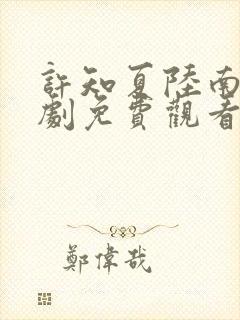 許知夏陸南
劇免費觀看
鄭偉哉